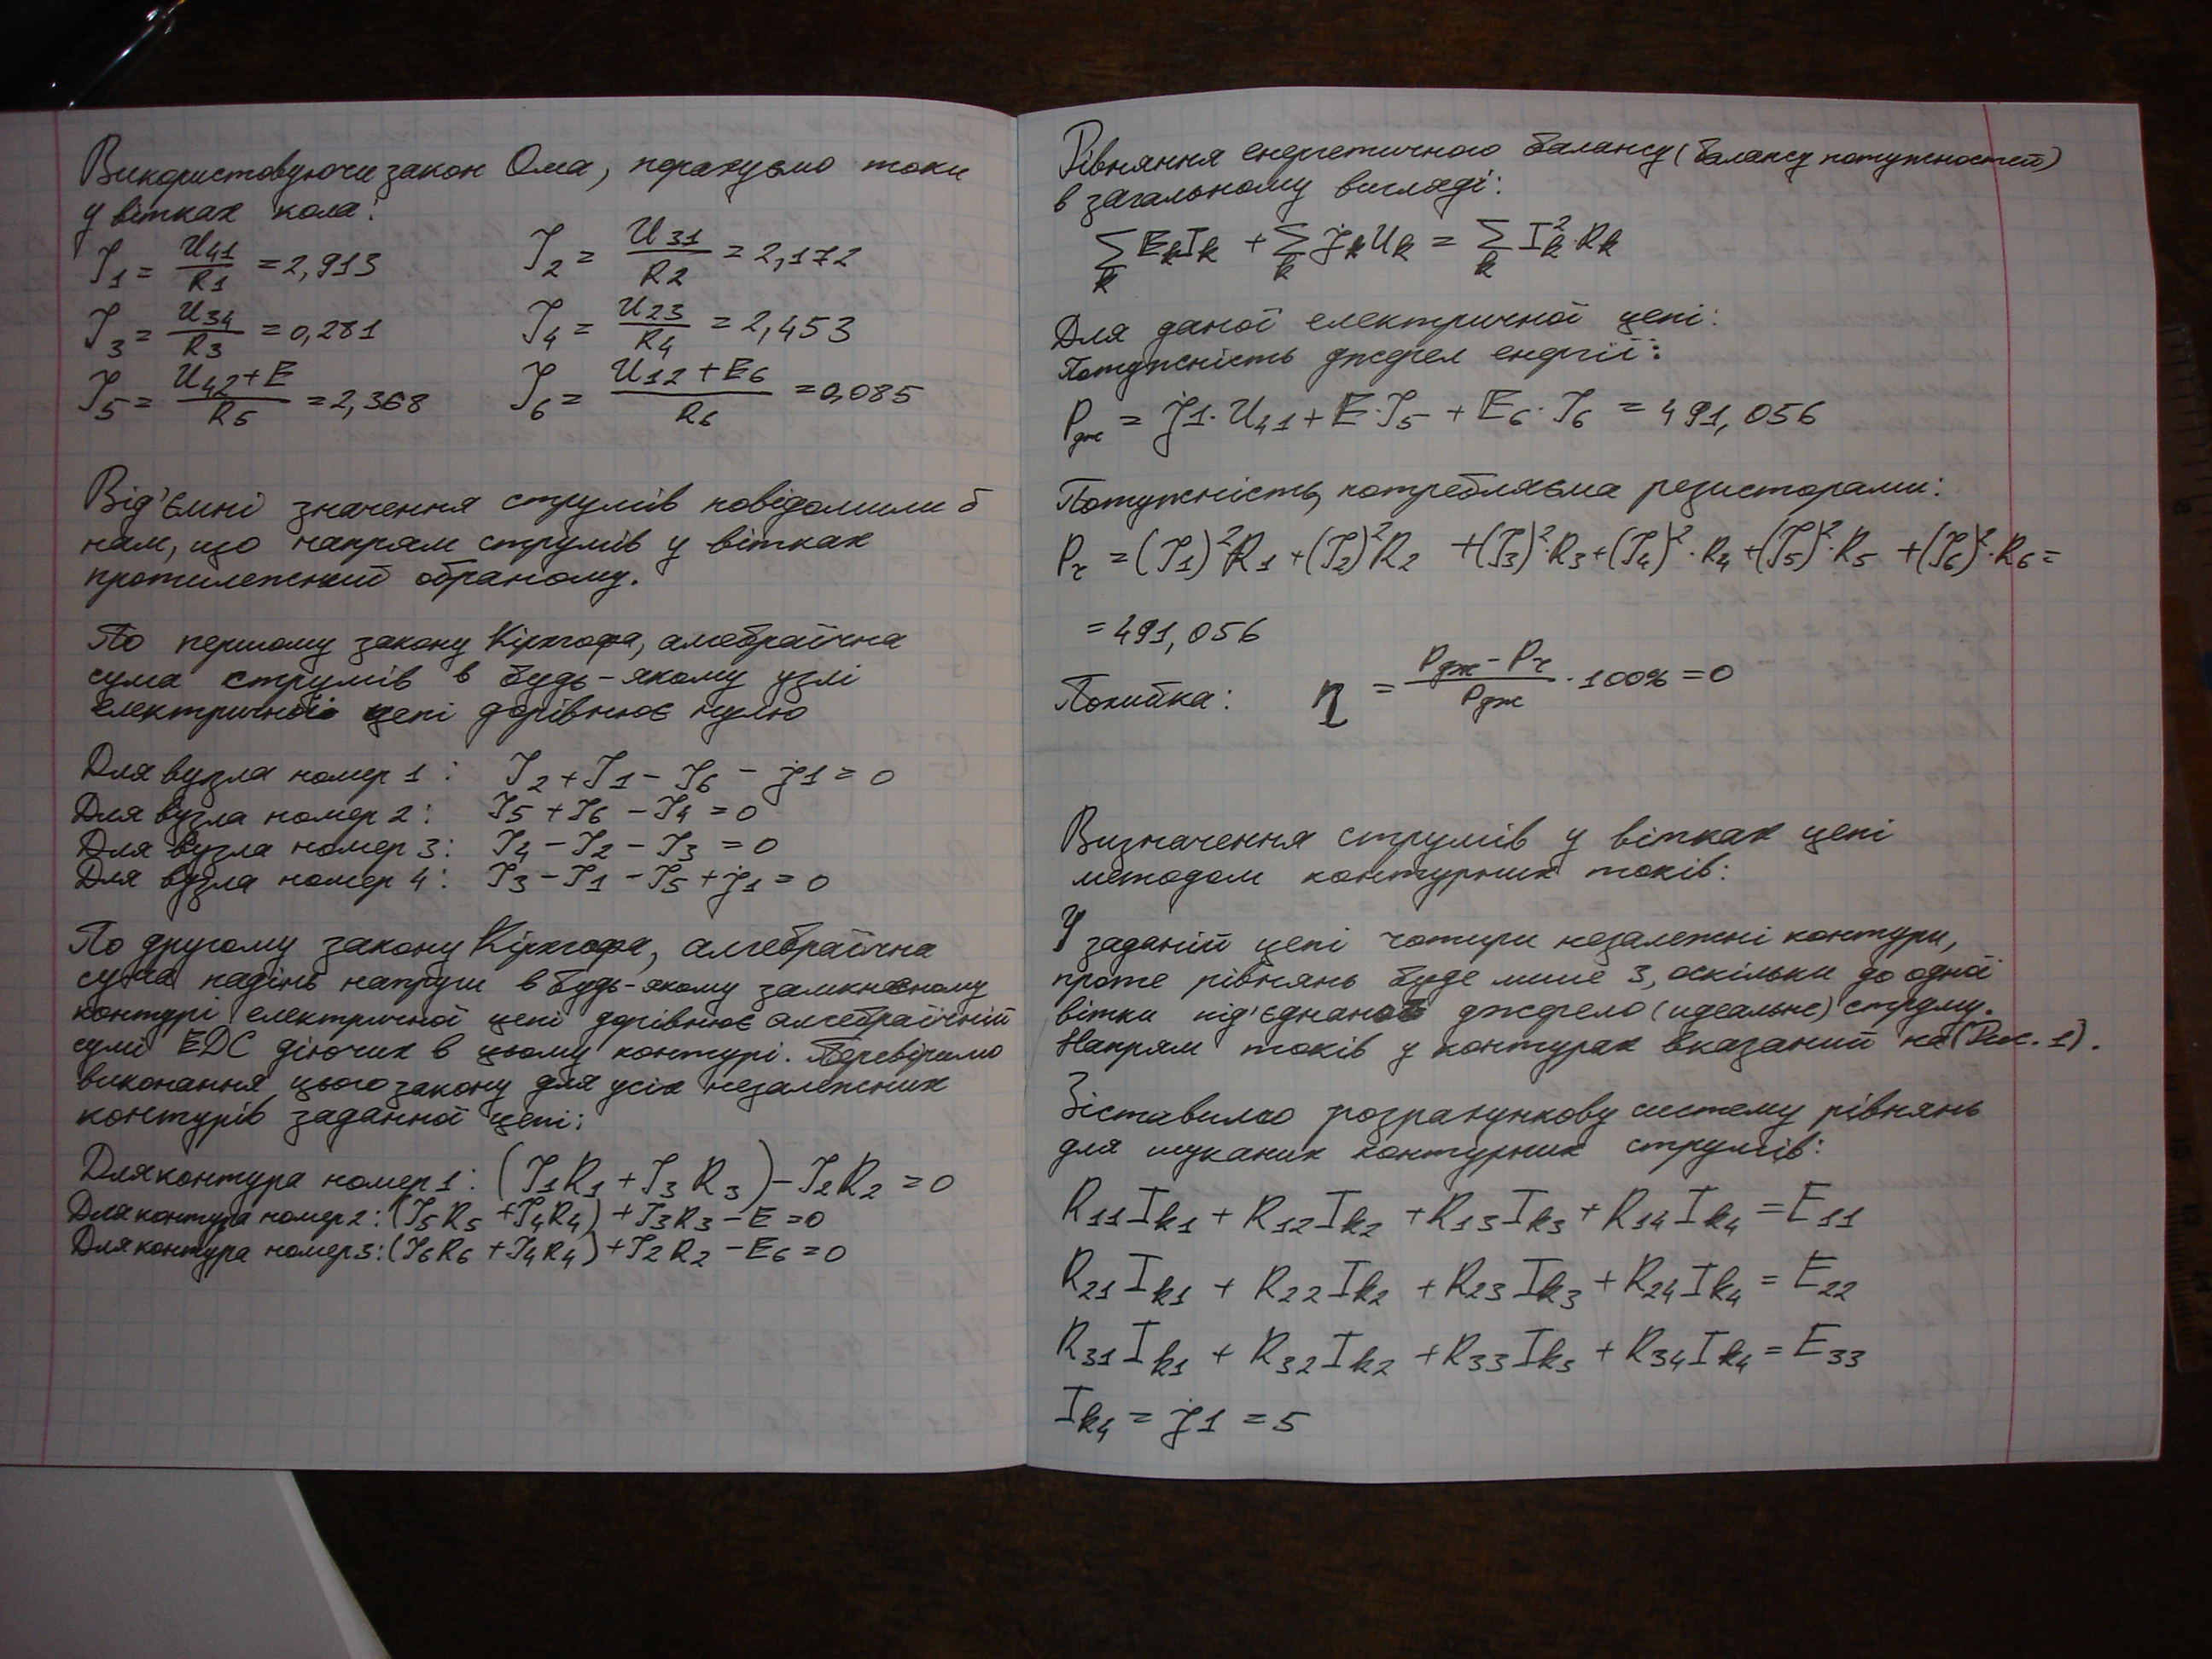 Використовуючи закон Ома, порахуємо токи
у вітках кола:
I1 = U41/R1 = 2,913 I2 = U31/R2 = 2,172
I3 = U34/R3 = 0,281 I4 = U23/R4 = 2,453
I5 = (U42+E)/R5 = 2,368 I6 = (U12+E6)/R6 = 0,085
Від'ємні значення струмів повідомили б
нам, що напрям струмів у вітках
протилежний обраному.
По першому закону Кірхгофа, алгебраїчна
сума струмів в будь-якому узлі
електричної цепі дорівнює нулю
Для вузла номер 1: I2 + I1 - I6 - j1 = 0
Для вузла номер 2: I5 + I6 - I4 = 0
Для вузла номер 3: I4 - I2 - I3 = 0
Для вузла номер 4: I3 - I1 - I5 + j1 = 0
По другому закону Кірхгофа, алгебраїчна
сума падінь напруги в будь-якому замкненому
контурі електричної цепі дорівнює алгебраїчній
сумі ЕДС діючих в цьому контурі. Перевіримо
виконання цього закону для усіх незалежних
контурів заданної цепі:
Для контура номер 1: (I1R1 + I3R3) - I2R2 = 0
Для контура номер 2: (I5R5 + I4R4) + I3R3 - E = 0
Для контура номер 3: (I6R6 + I4R4) + I2R2 - E6 = 0
Рівняння енергетичного балансу (балансу потужностей)
в загальному вигляді:
∑k EkIk + ∑k jkUk = ∑k I²k·Rk
Для даної електричної цепі:
Потужність джерел енергії:
Pдж = j1·U41 + E·I5 + E6·I6 = 491,056
Потужність, потребляєма резисторами:
Pr = (I1)²·R1 + (I2)²R2 + (I3)²·R3 + (I4)²·R4 + (I5)²·R5 + (I6)²·R6 =
= 491,056
Похибка: η = (Pдж - Pr)/Pдж · 100% = 0
Визначення струмів у вітках цепі
методом контурних токів:
У заданій цепі чотири незалежні контури,
проте рівнянь буде лише 3, оскільки до одної
вітки під'єднано джерело (идеальне) струму.
Напрям токів у контурах вказаний на (Рис. 1).
Зіставимо розрахункову систему рівнянь
для шуканих контурних струмів:
R11Ik1 + R12Ik2 + R13Ik3 + R14Ik4 = E11
R21Ik1 + R22Ik2 + R23Ik3 + R24Ik4 = E22
R31Ik1 + R32Ik2 + R33Ik3 + R34Ik4 = E33
Ik4 = j1 = 5